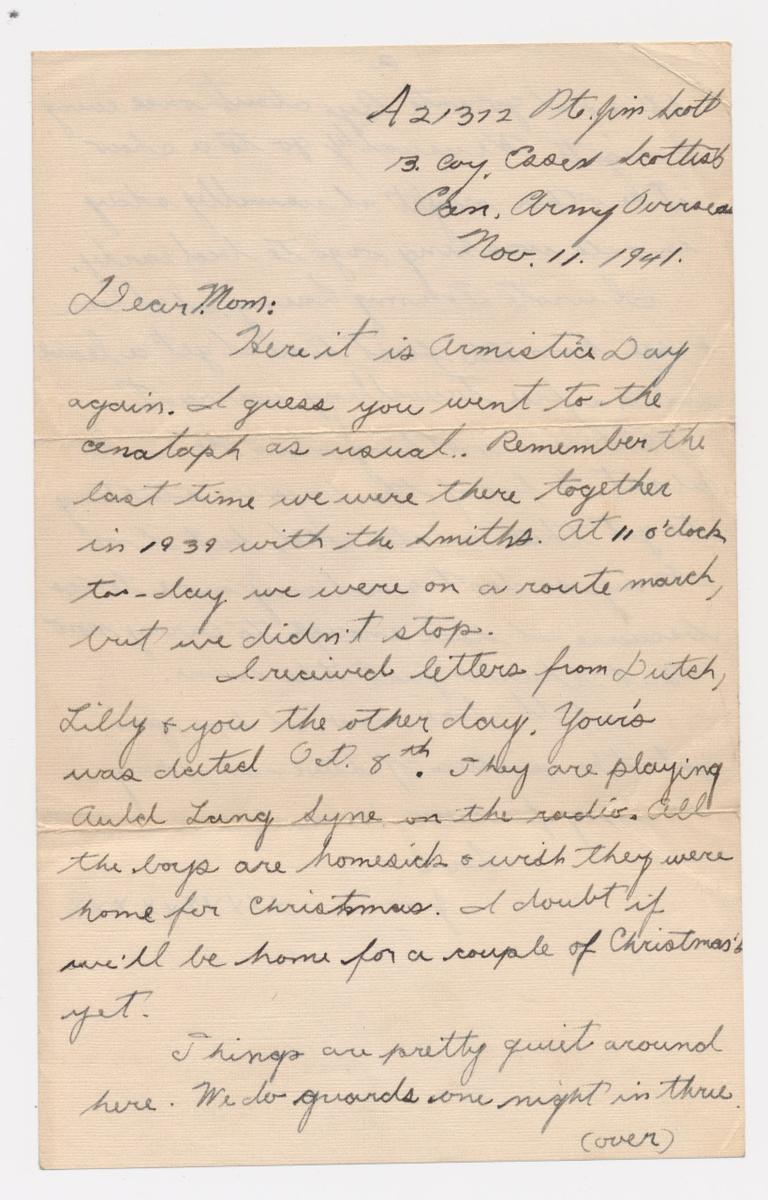 A21372 Pte. Jim Scott
B. Coy, Essex Scottish
Can. Army Overseas
Nov. 11. 1941.
Dear Mom:
Here it is Armistice Day
again. I guess you went to the
cenataph as usual.. Remember the
last time we were there together
in 1939 with the Smiths. At 11 o'clock
to-day we were on a route march,
but we didn't stop.
I received letters from Dutch,
Lilly & you the other day. Your's
was dated Oct. 8th. They are playing
Auld Lang Syne on the radio. All
the boys are homesick & wish they were
home for Christmas. I doubt if
we'll be home for a couple of Christmas's
yet.
Things are pretty quiet around
here. We do guards one night in three.
(over)